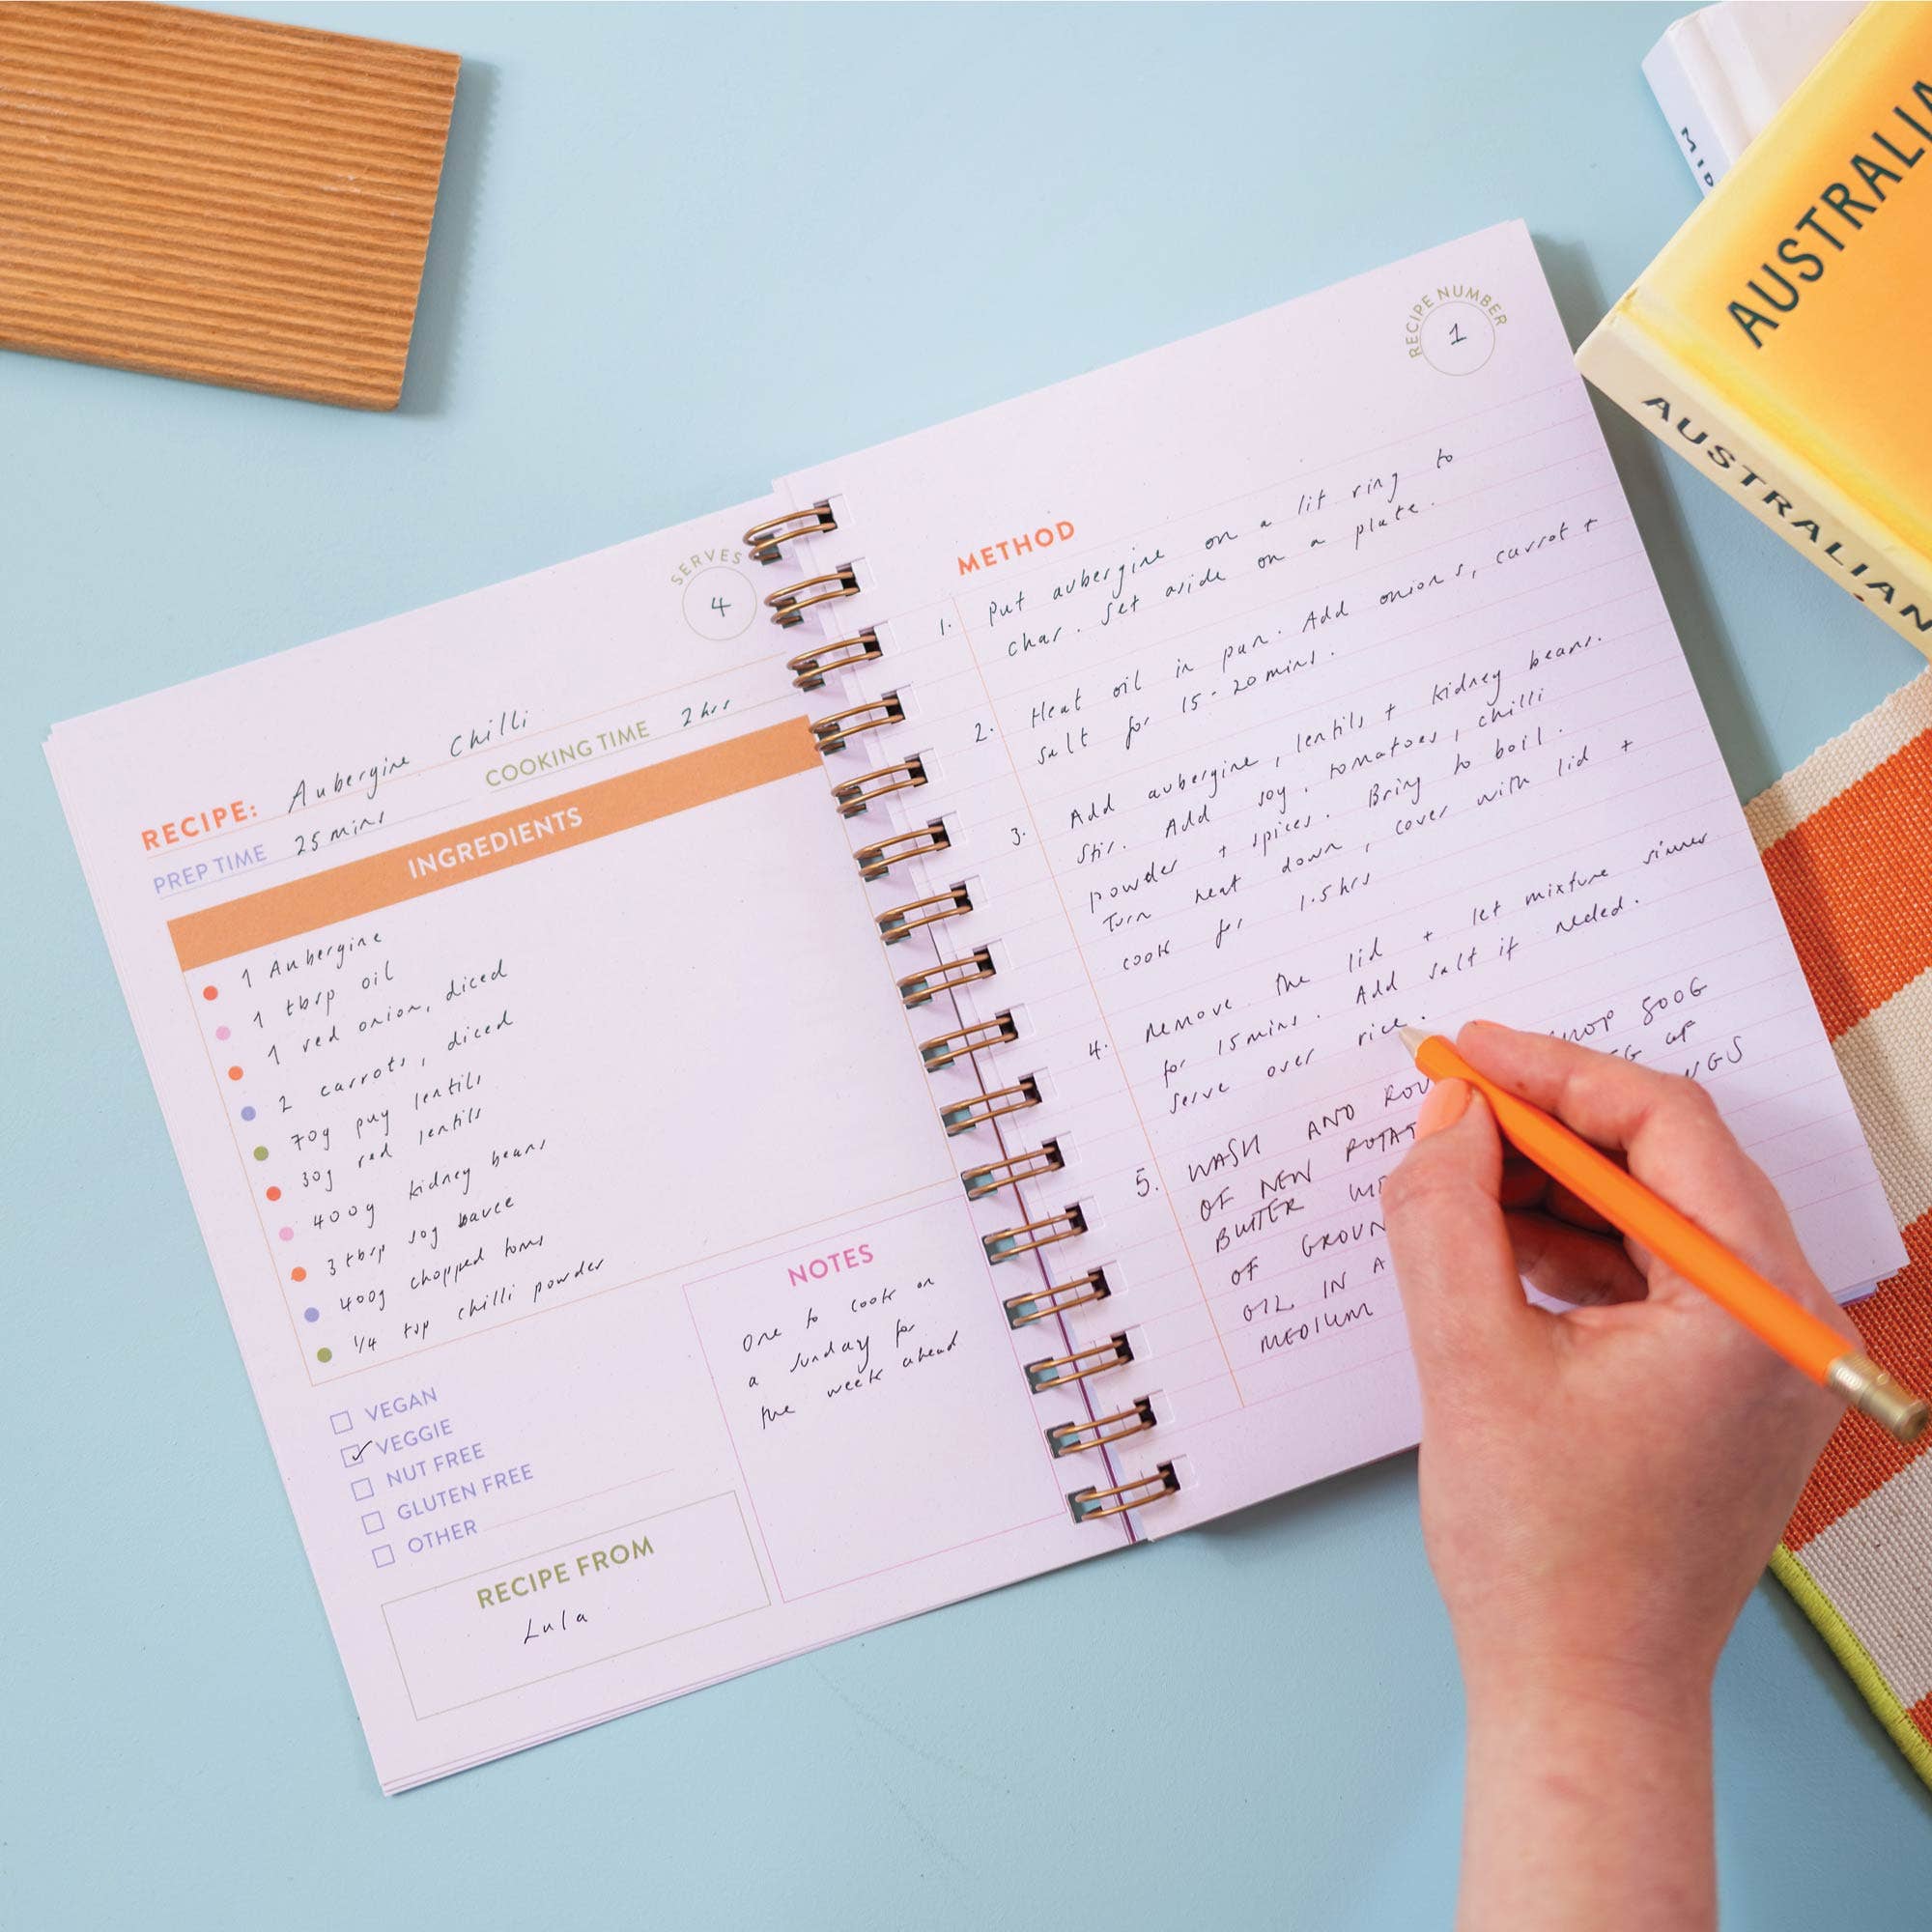 SERVES
4
RECIPE: Aubergine Chilli
PREP TIME 25 mins COOKING TIME 2 hrs
INGREDIENTS
1 Aubergine
1 tbsp oil
1 red onion, diced
2 carrots, diced
70g puy lentils
30g red lentils
400g kidney beans
3 tbsp soy sauce
400g chopped toms
1/4 tsp chilli powder
VEGAN
VEGGIE
NUT FREE
GLUTEN FREE
OTHER
NOTES
One to cook on
a Sunday for
the week ahead
RECIPE FROM
Lula
RECIPE NUMBER
1
METHOD
1. Put aubergine on a lit ring to
char. Set aside on a plate.
2. Heat oil in pan. Add onions, carrot +
salt for 15-20 mins.
3. Add aubergine, lentils + kidney beans.
Stir. Add soy, tomatoes, chilli
powder + spices. Bring to boil.
Turn heat down, cover with lid +
cook for 1.5hrs
4. Remove the lid + let mixture simmer
for 15 mins. Add salt if needed.
Serve over rice.
5. WASH AND 500G
OF NEW OF
BUTTER
OF
OIL IN A
MEDIUM
AUSTRALIA
AUSTRALIAN